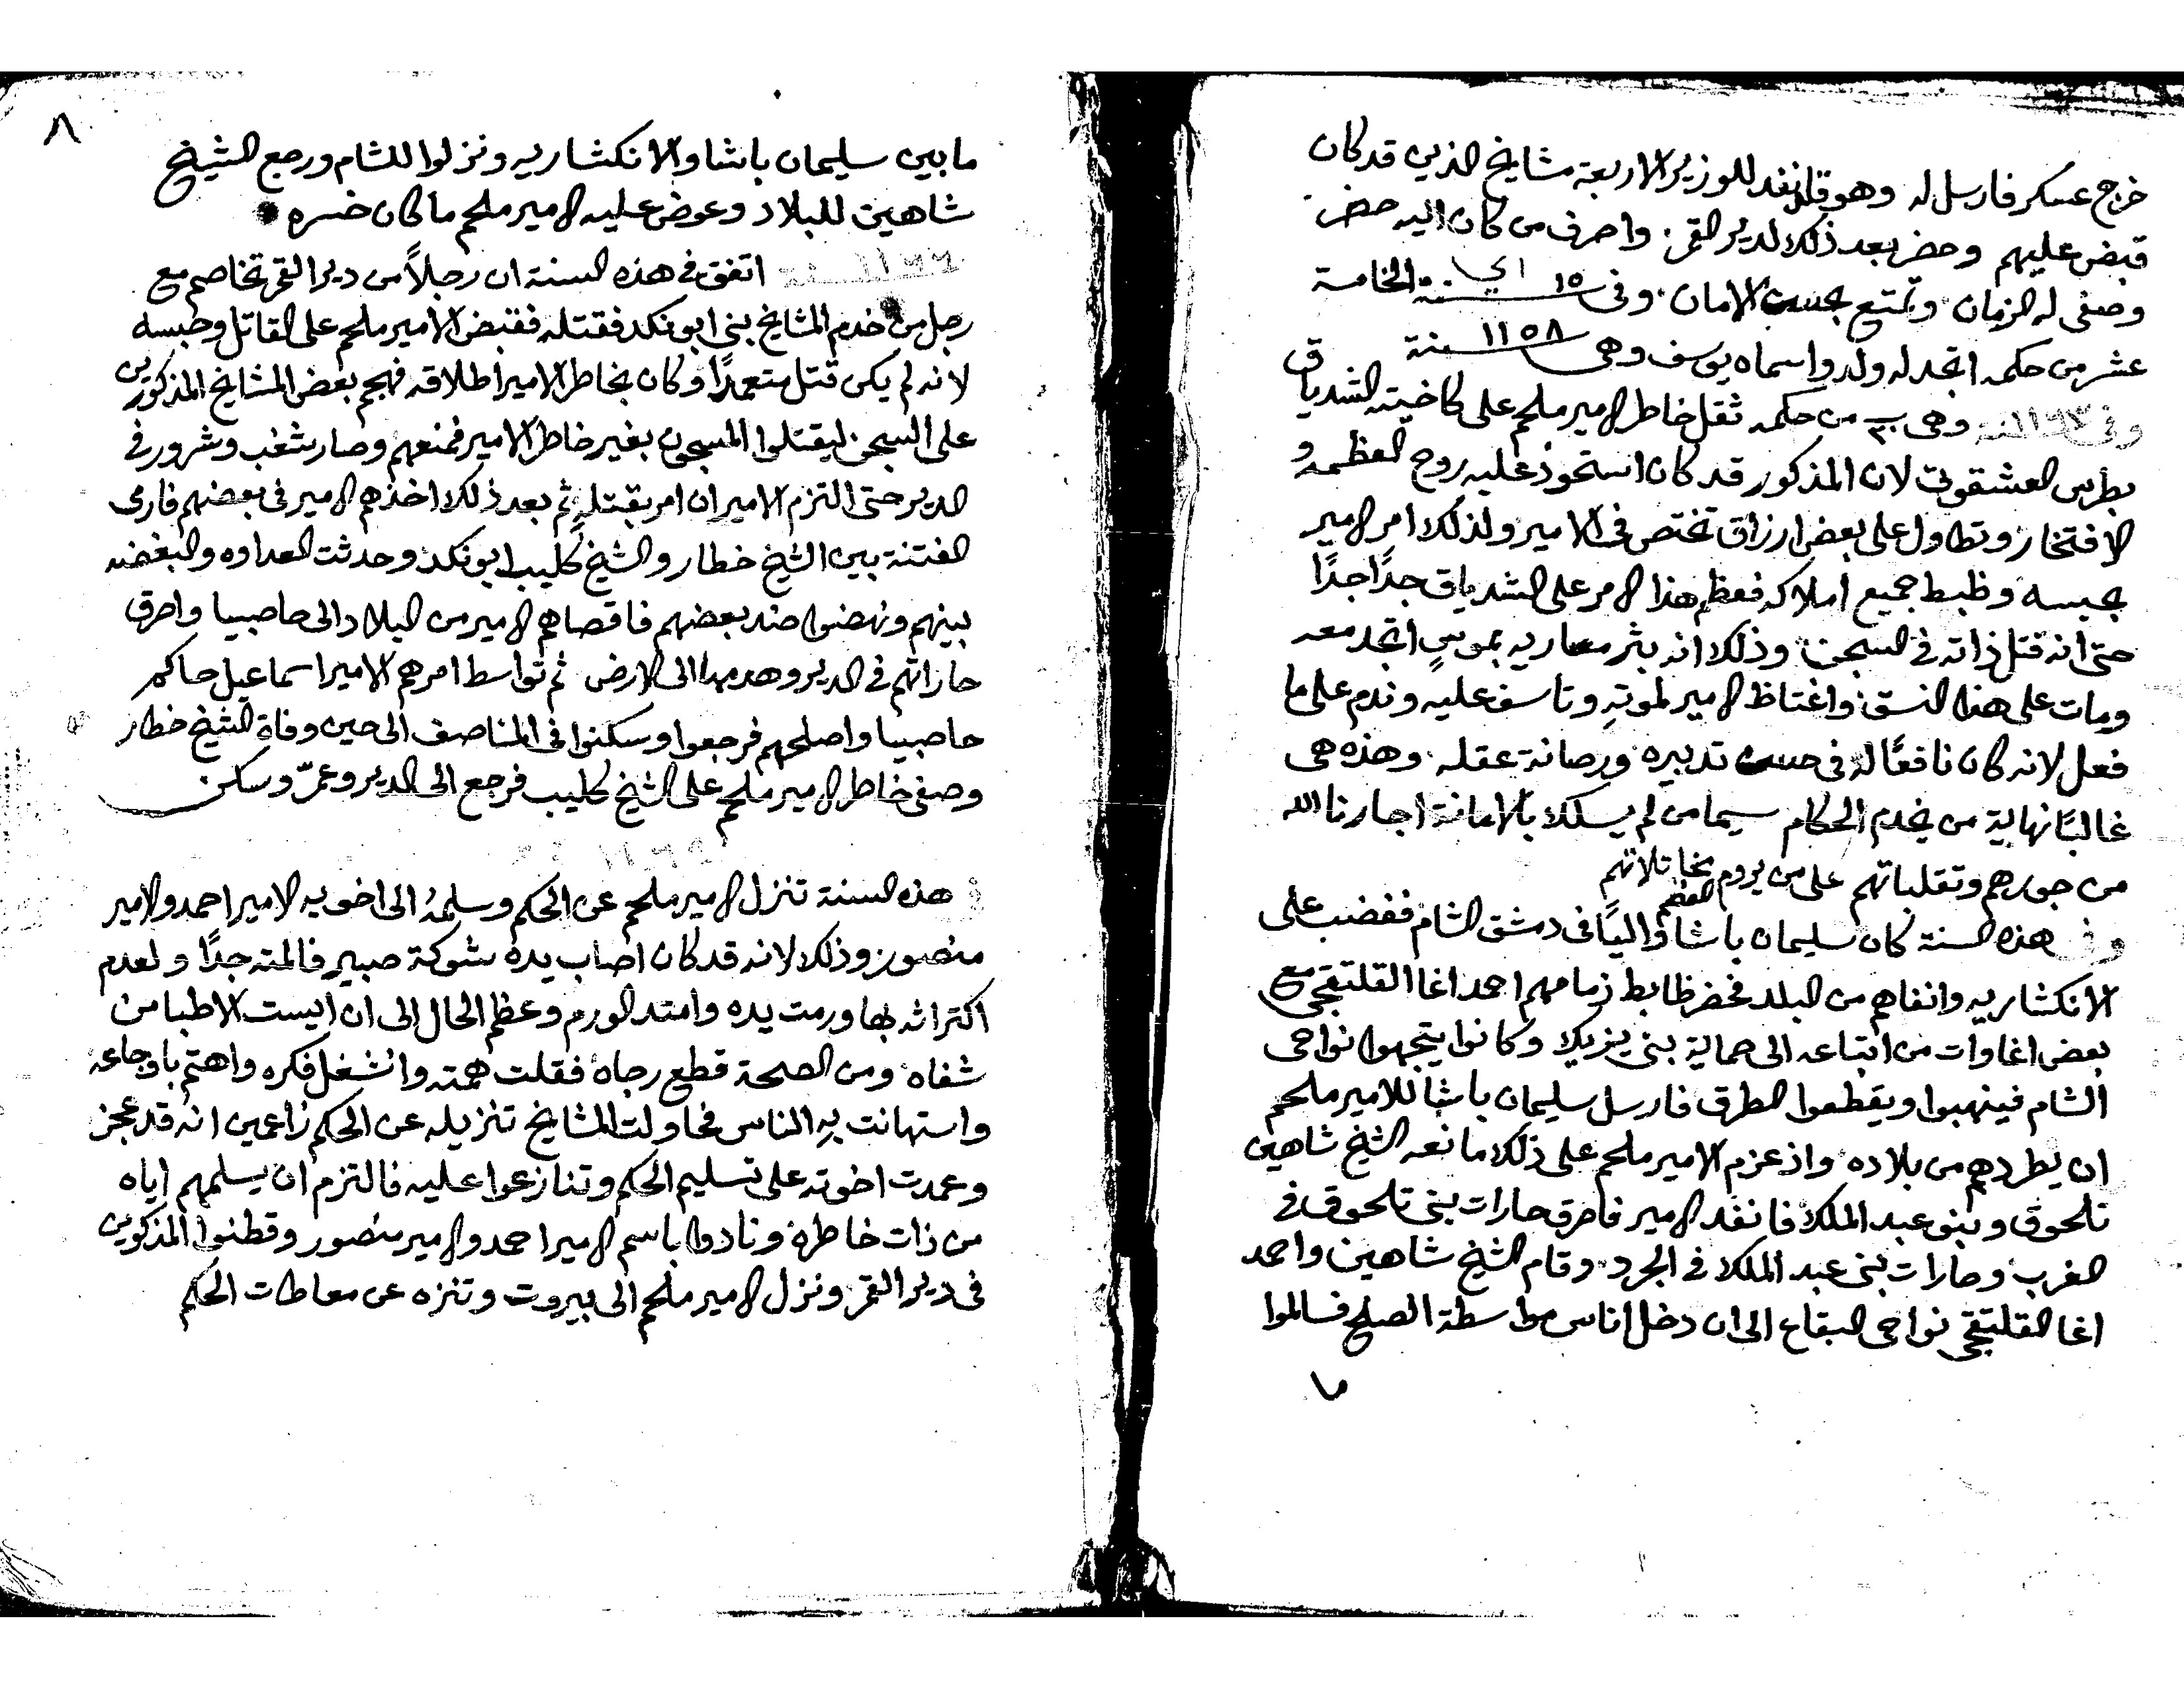 خرج عسكر فارسل له وهو قد انفد للوزير الاربعة مشايخ الذين قد كان
قبض عليهم وحضر بعد ذلك لدير القمر. واصرف من كان اليه حضر.
وصفى له الزمان وتمتع بحسن الامان. وفى ١٥ سنة الخامسة
عشر من حكمه اتجد له ولد واسماه يوسف وهى سنة ١١٥٨
وفى سنة وهى من حكمه ثقل خاطر الامير ملحم على كاخيته الشدياق
بطرس العشقوتى لان المذكور قد كان استحوذ عليه روح العظمه و
الافتخار وتطاول على بعض ارزاق تختص فى الامير ولذلك امر الامير
بحبسه وظبط جميع املاكه فعظم هذا الامر على الشدياق جدًا جدًا
حتى انه قتل ذاته فى السجن وذلك انه بثر مصاريه بموسٍ اتجد معه
ومات على هذا النسق واغتاظ الامير لموتهِ وتاسف عليه وندم على ما
فعل لانه كان نافعًا له فى حسن تدبيره ورصانة عقله وهذه هى
غالبًا نهاية من يخدم الحكام سيما من لم يسلك بالامانة اجارنا الله
من جورهم وتقلباتهم على من يروم مخاتلاتهم
وفى هذه السنة كان سليمان باشا العظم واليًا فى دمشق الشام فغضب على
الانكشاريه وانفاهم من البلد فحضر ظابط زمامهم احمد اغا القلتقجى مع
بعض اغاوات من اتباعه الى حماية بنى يزبك وكانوا يتجهوا نواحى
الشام فينهبوا ويقطعوا الطرق فارسل سليمان باشا للامير ملحم
ان يطردهم من بلاده واذ عزم الامير ملحم على ذلك مانعه الشيخ شاهين
تلحوق وبنو عبد الملك فانفد الامير فاحرق حارات بنى تلحوق فى
الغرب وحارات بنى عبد الملك فى الجرد وقام الشيخ شاهين واحمد
اغا القلتقجى نواحى البقاع الى ان دخل اناس بواسطة الصلح فسالموا
ما
٨
ما بين سليمان باشا والانكشاريه ونزلوا للشام ورجع الشيخ
شاهين للبلاد وعوض عليه الامير ملحم ما كان خسره
اتفق فى هذه السنة ان رجلاً من دير القمر تخاصم مع
رجل من خدم المشايخ بنى ابو نكد فقتله فقبض الامير ملحم على القاتل وحبسه
لانه لم يكن قتل متعمدًا وكان بخاطر الامير اطلاقه فهجم بعض المشايخ المذكورين
على السجن ليقتلوا المسجون بغير خاطر الامير فمنعهم وصار شغب وشرور فى
الدير حتى التزم الامير ان امر بقتلهِ ثم بعد ذلك اخذهم الامير فى بعضهم فارمى
الفتنة بين الشيخ خطار والشيخ كليب ابو نكد وحدثت العداوه والبغضه
بينهم ونهضوا ضد بعضهم فاقصاهم الامير من البلاد الى حاصبيا واحرق
حاراتهم فى الدير وهدمها الى الارض ثم تواسط امرهم الامير اسماعيل حاكم
حاصبيا واصلحهم فرجعوا وسكنوا فى المناصف الى حين وفاة الشيخ خطار
وصفى خاطر الامير ملحم على الشيخ كليب فرجع الى الدير وعمّر وسكن
هذه السنة تنزل الامير ملحم عن الحكم وسلمهُ الى اخويه الامير احمد والامير
منصور وذلك لانه قد كان اصاب يده شوكة صبير فالمته جدًا ولعدم
اكتراثه بها ورمت يده وامتد الورم وعظم الحال الى ان ايست الاطبا من
شفاه ومن الصحة قطع رجاه فقلت همته وانشغل فكره واهتم باوجاعه
واستهانت بهِ الناس فحاولت المشايخ تنزيله عن الحكم زاعمين انه قد عجز
وعمدت اخوته على تسليم الحكم وتنازعوا عليه فالتزم ان يسلمهم اياه
من ذات خاطره ونادوا باسم الامير احمد والامير منصور وقطنوا المذكورين
فى دير القمر ونزل الامير ملحم الى بيروت وتنزه عن معاطات الحكم